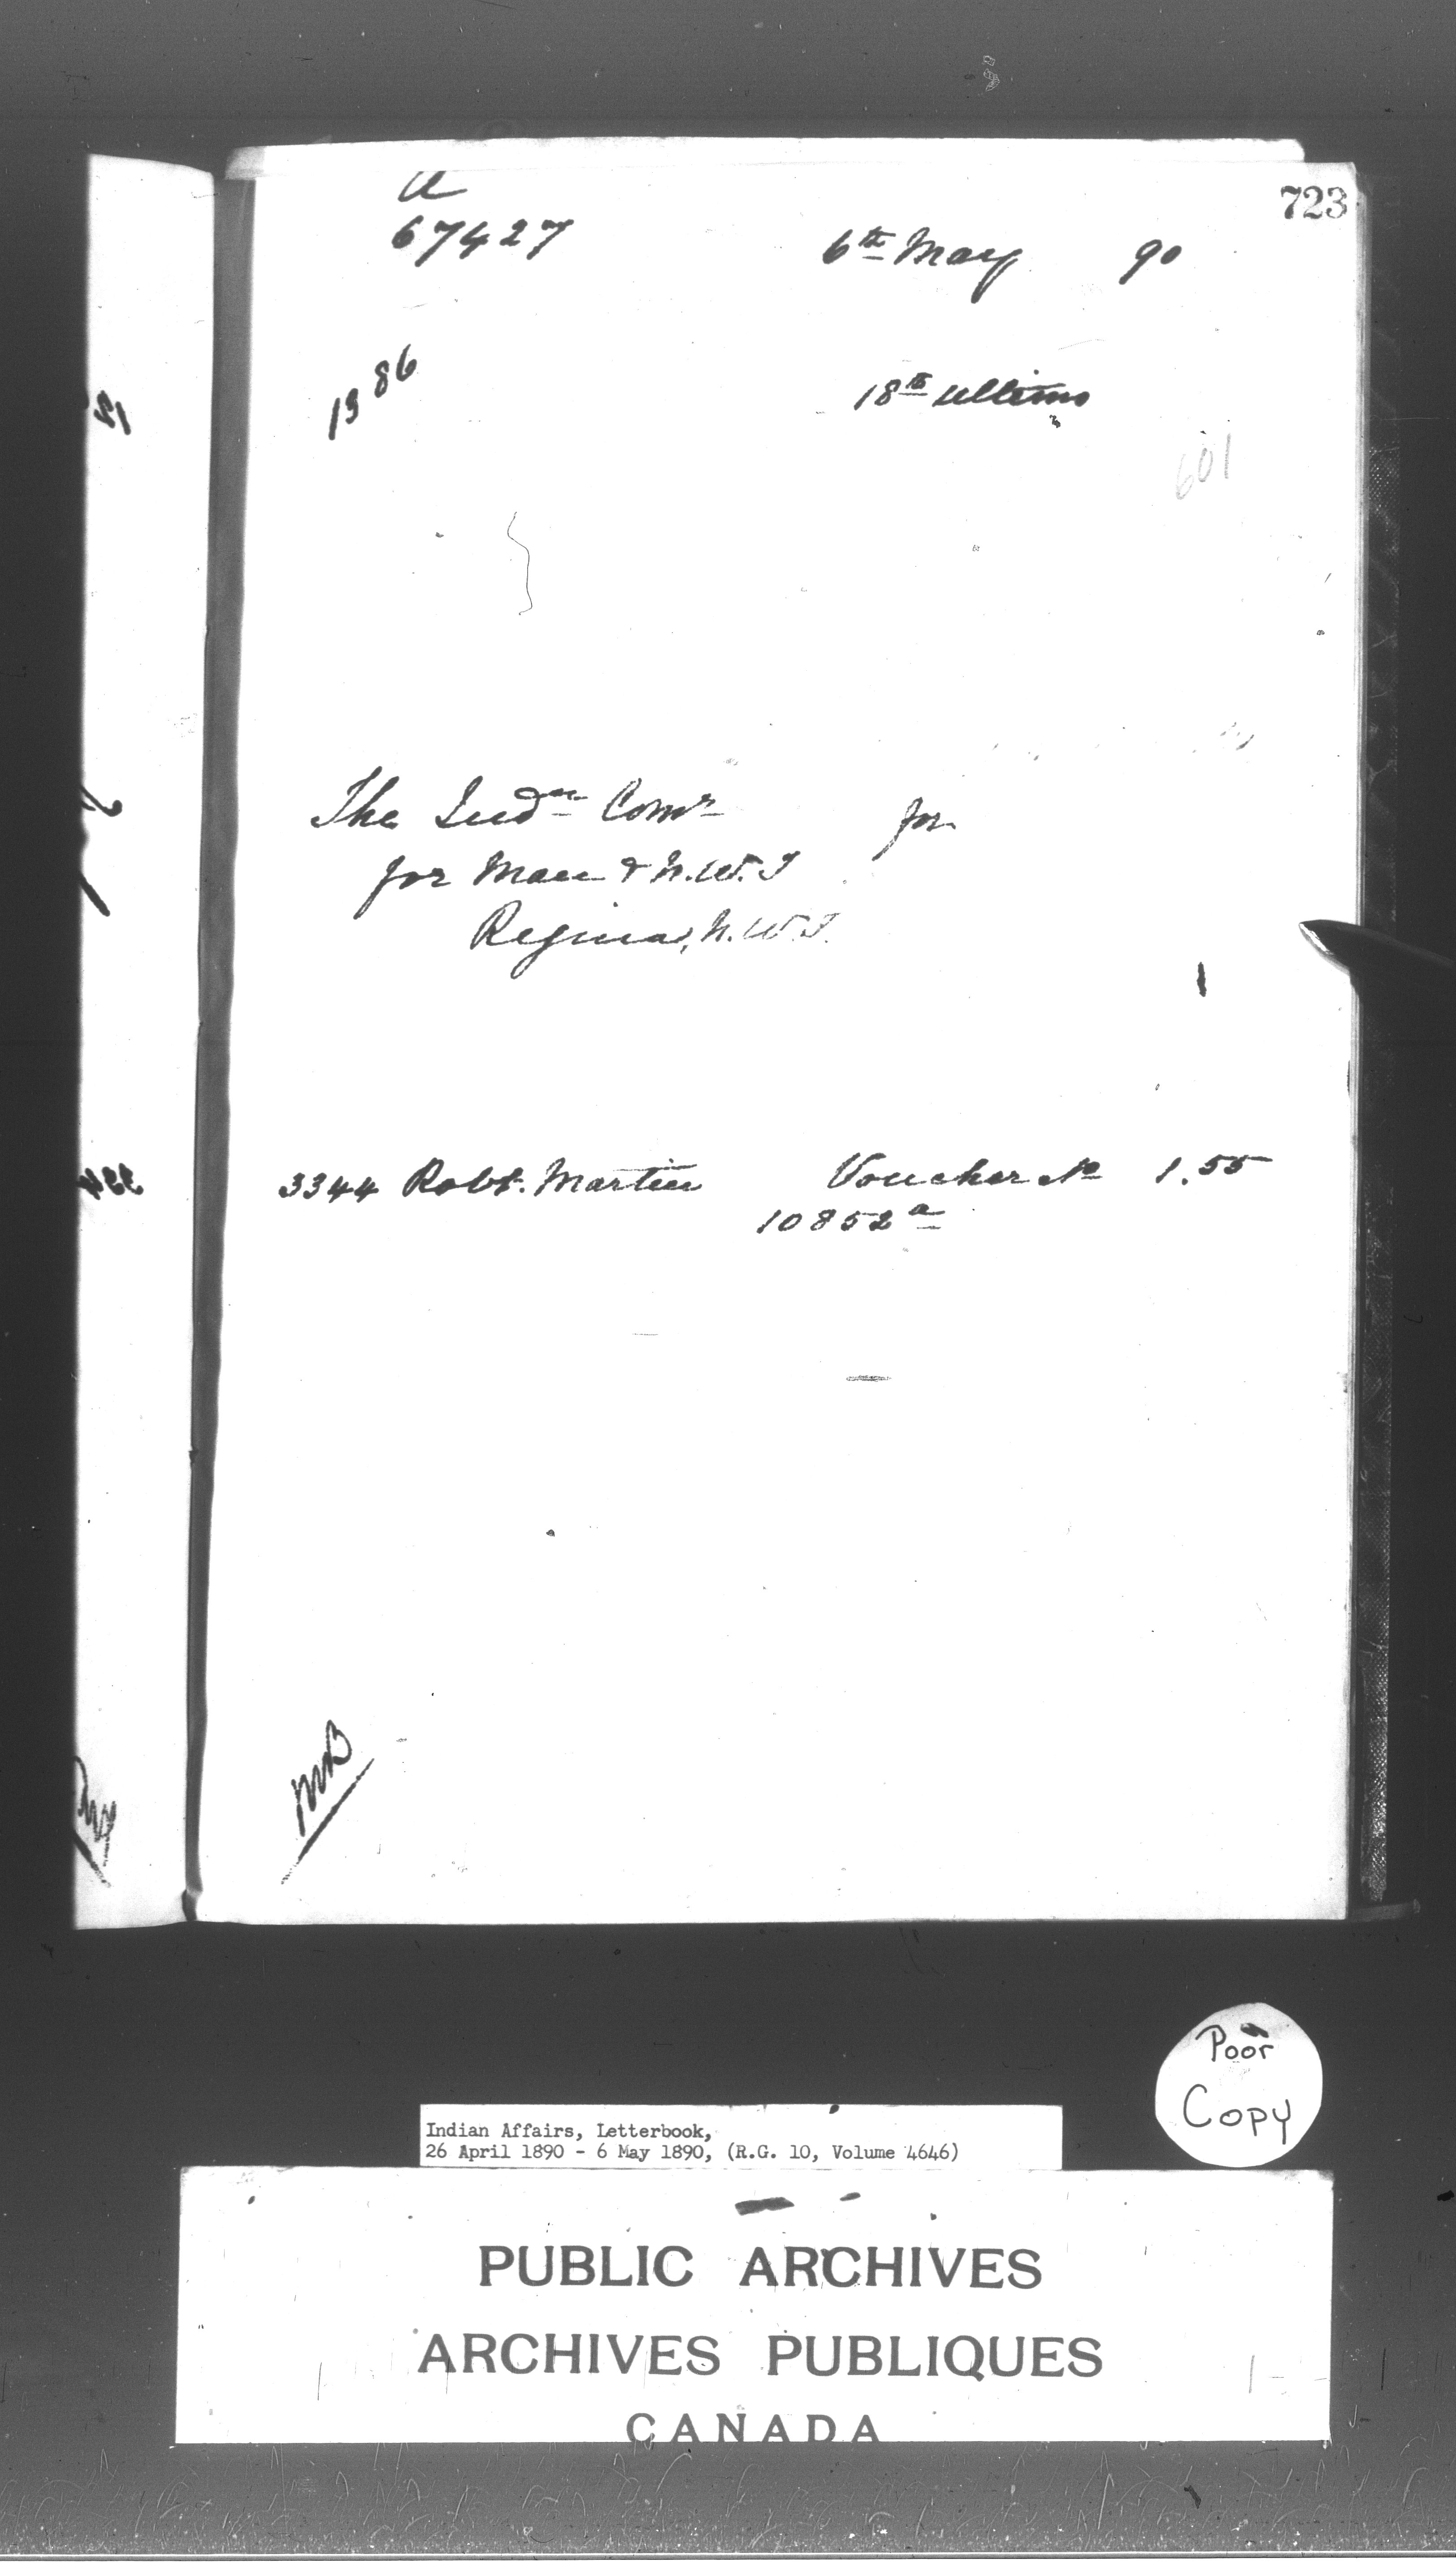 723
a
67427 6th May 90
1386 18th ultimo
601
The Indn Comr for
for Man & N.W.T
Regina, N.W.T.
3344 Robt. Martin Voucher No 1.55
10852a
MB
Poor
Copy
Indian Affairs, Letterbook,
26 April 1890 - 6 May 1890, (R.G. 10, Volume 4646)
PUBLIC ARCHIVES
ARCHIVES PUBLIQUES
CANADA